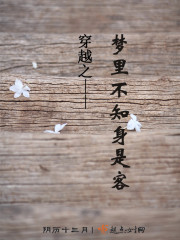 穿越之——
梦里不知身是客
阴历十三月|起点创网